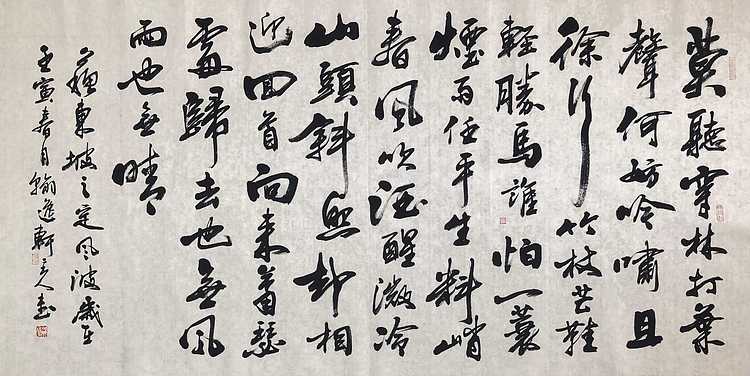 莫聽穿林打葉
聲何妨吟嘯且
徐行竹杖芒鞋
輕勝馬誰怕一蓑
煙雨任平生料峭
春風吹酒醒微冷
山頭斜照却相
迎回首向來蕭瑟
處歸去也無風
雨也無晴
蘇東坡之定風波歲在
壬寅春月翰逸軒主人書